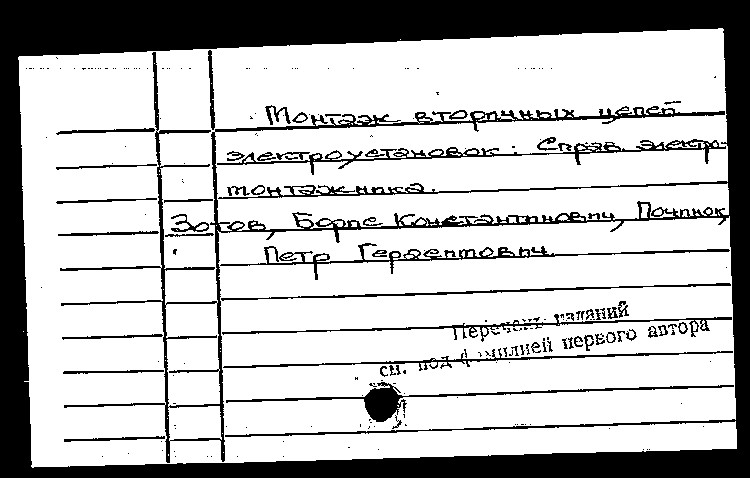 Монтаж вторичных цепей
электроустановок: Справ. электро-
монтажника.
Зотов, Борис Константинович, Починок,
Петр Герасимович.
Перечень изданий
см. под фамилией первого автора